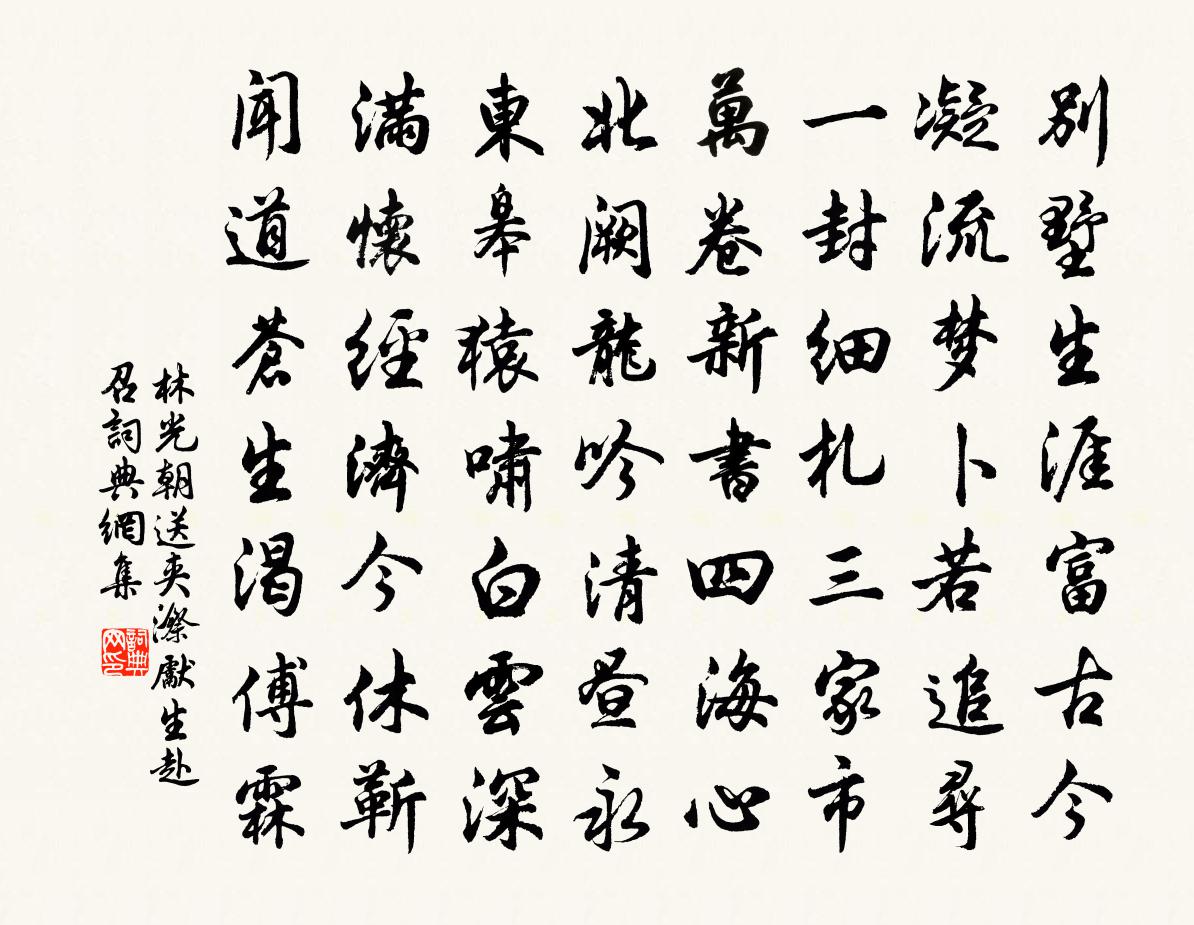 別墅生涯富古今
凝流梦卜若追尋
一封细札三家市
萬卷新書四海心
北阙龍吟清昼永
東皋猿啸白雲深
滿懷經濟今休靳
闻道蒼生渴傅霖
林光朝送夹漈獻生赴
召詞典網集
詞典网印